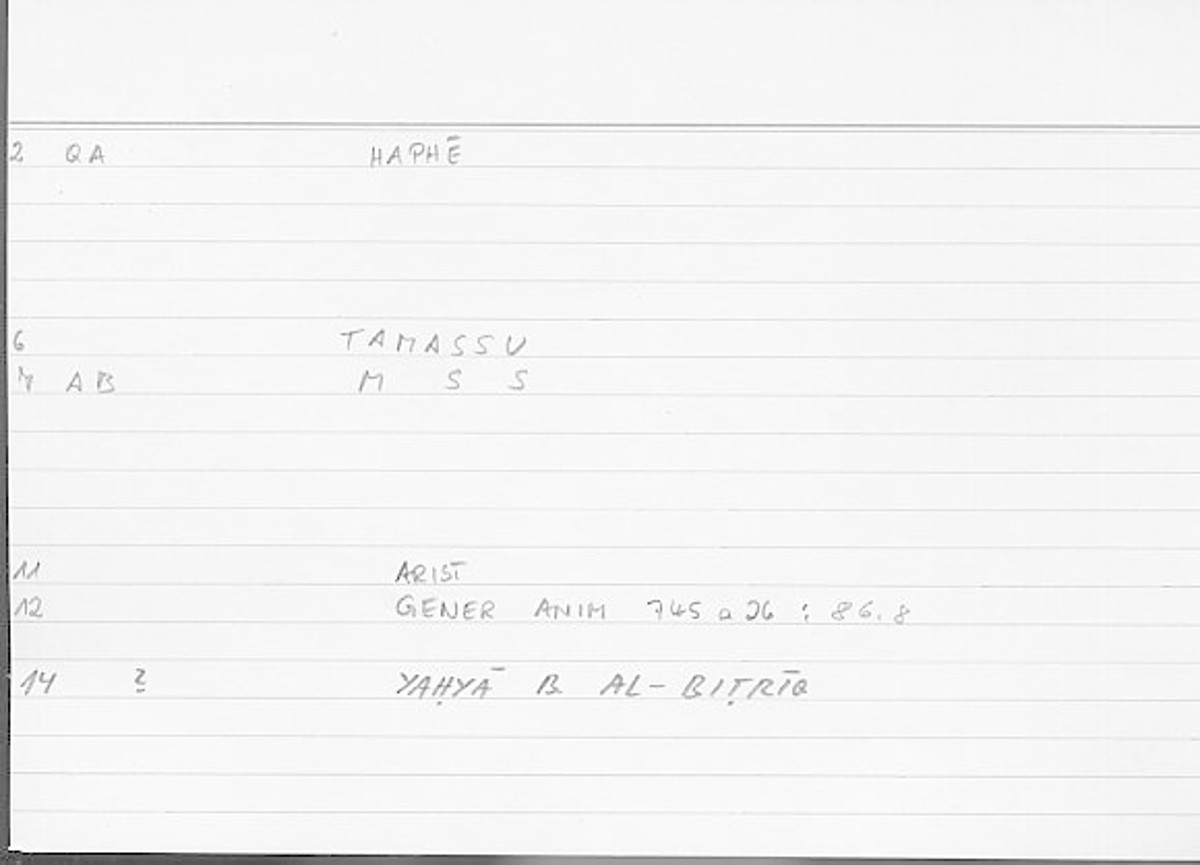 2 QA HAPHĒ
6 TAMASSU
7 AB M S S
11 ARIST
12 GENER ANIM 745 a 26 : 86.8
14 YAḤYĀ B AL-BIṬRĪQ